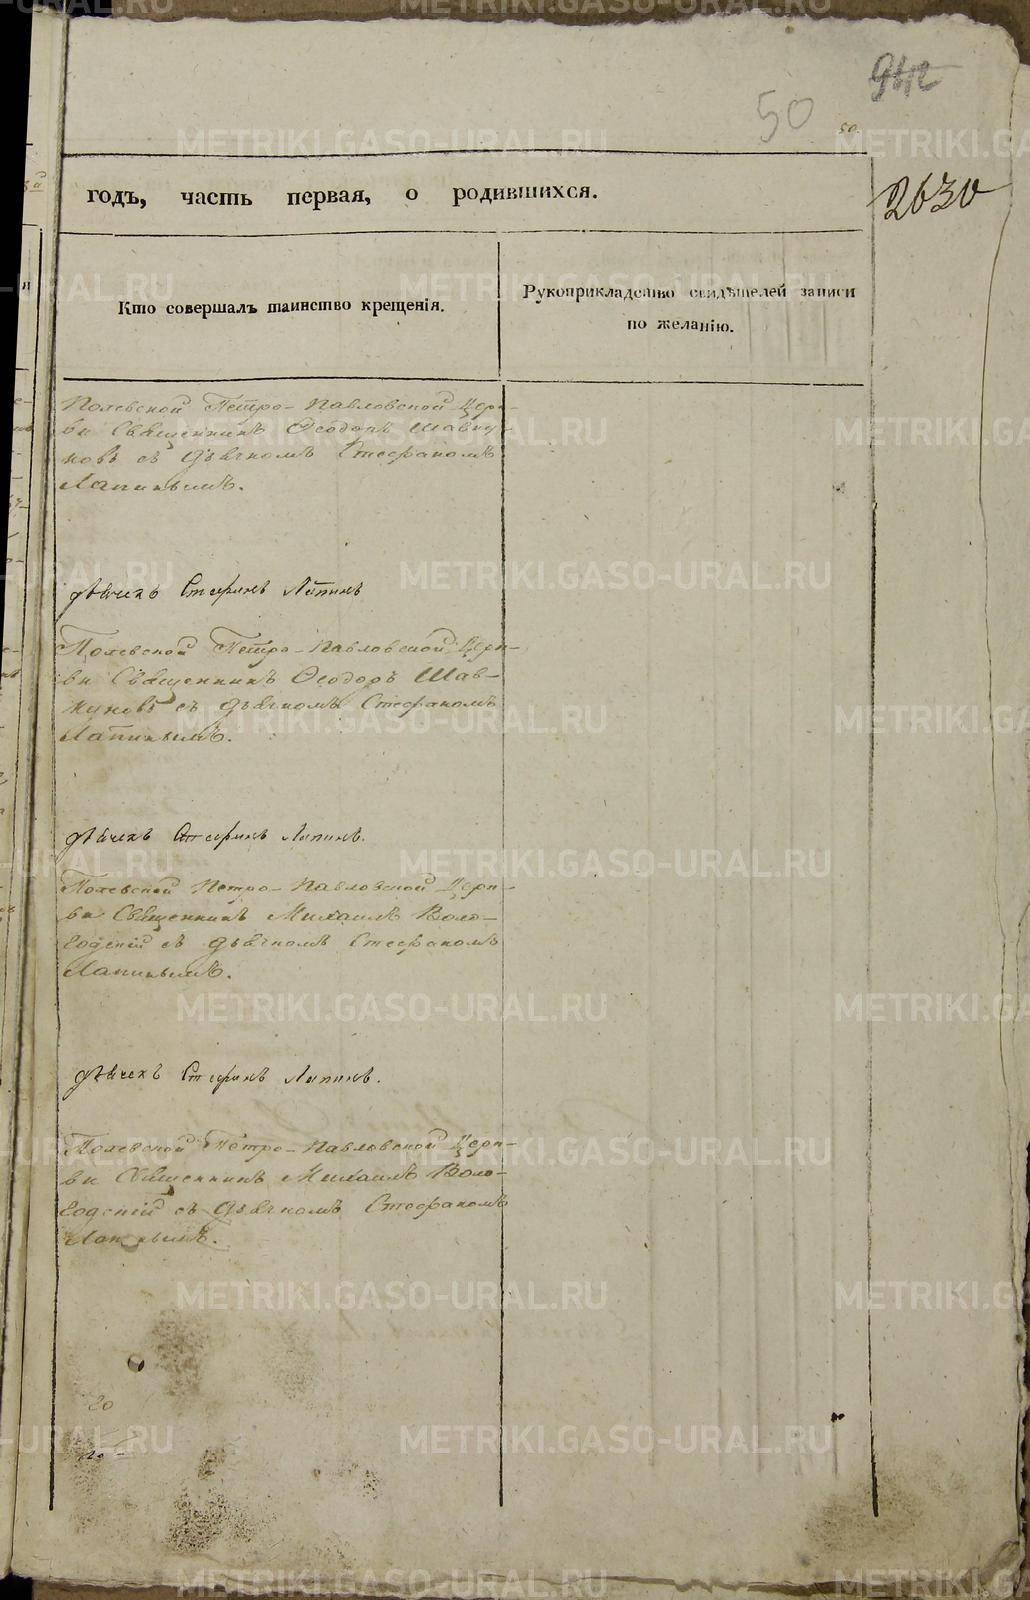 942
50
50.
2630
годъ, часть первая, о родившихся.
Кто совершалъ таинство крещенія.
Рукоприкладство свидѣтелей записи
по желанію.
Полевской Петро-Павловской Церк-
ви Священникъ Ѳеодоръ Шавку-
новъ съ дьячкомъ Стефаномъ
Лапинымъ.
дьячекъ Стефанъ Лапинъ
Полевской Петро-Павловской Церк-
ви Священникъ Ѳеодоръ Шав-
куновъ съ дьячкомъ Стефаномъ
Лапинымъ.
дьячекъ Стефанъ Лапинъ.
Полевской Петро-Павловской Церк-
ви Священникъ Михаилъ Воло-
годскій съ дьячкомъ Стефаномъ
Лапинымъ.
дьячекъ Стефанъ Лапинъ.
Полевской Петро-Павловской Церк-
ви Священникъ Михаилъ Воло-
годскій съ дьячкомъ Стефаномъ
Лапинымъ.
20
METRIKI.GASO-URAL.RU